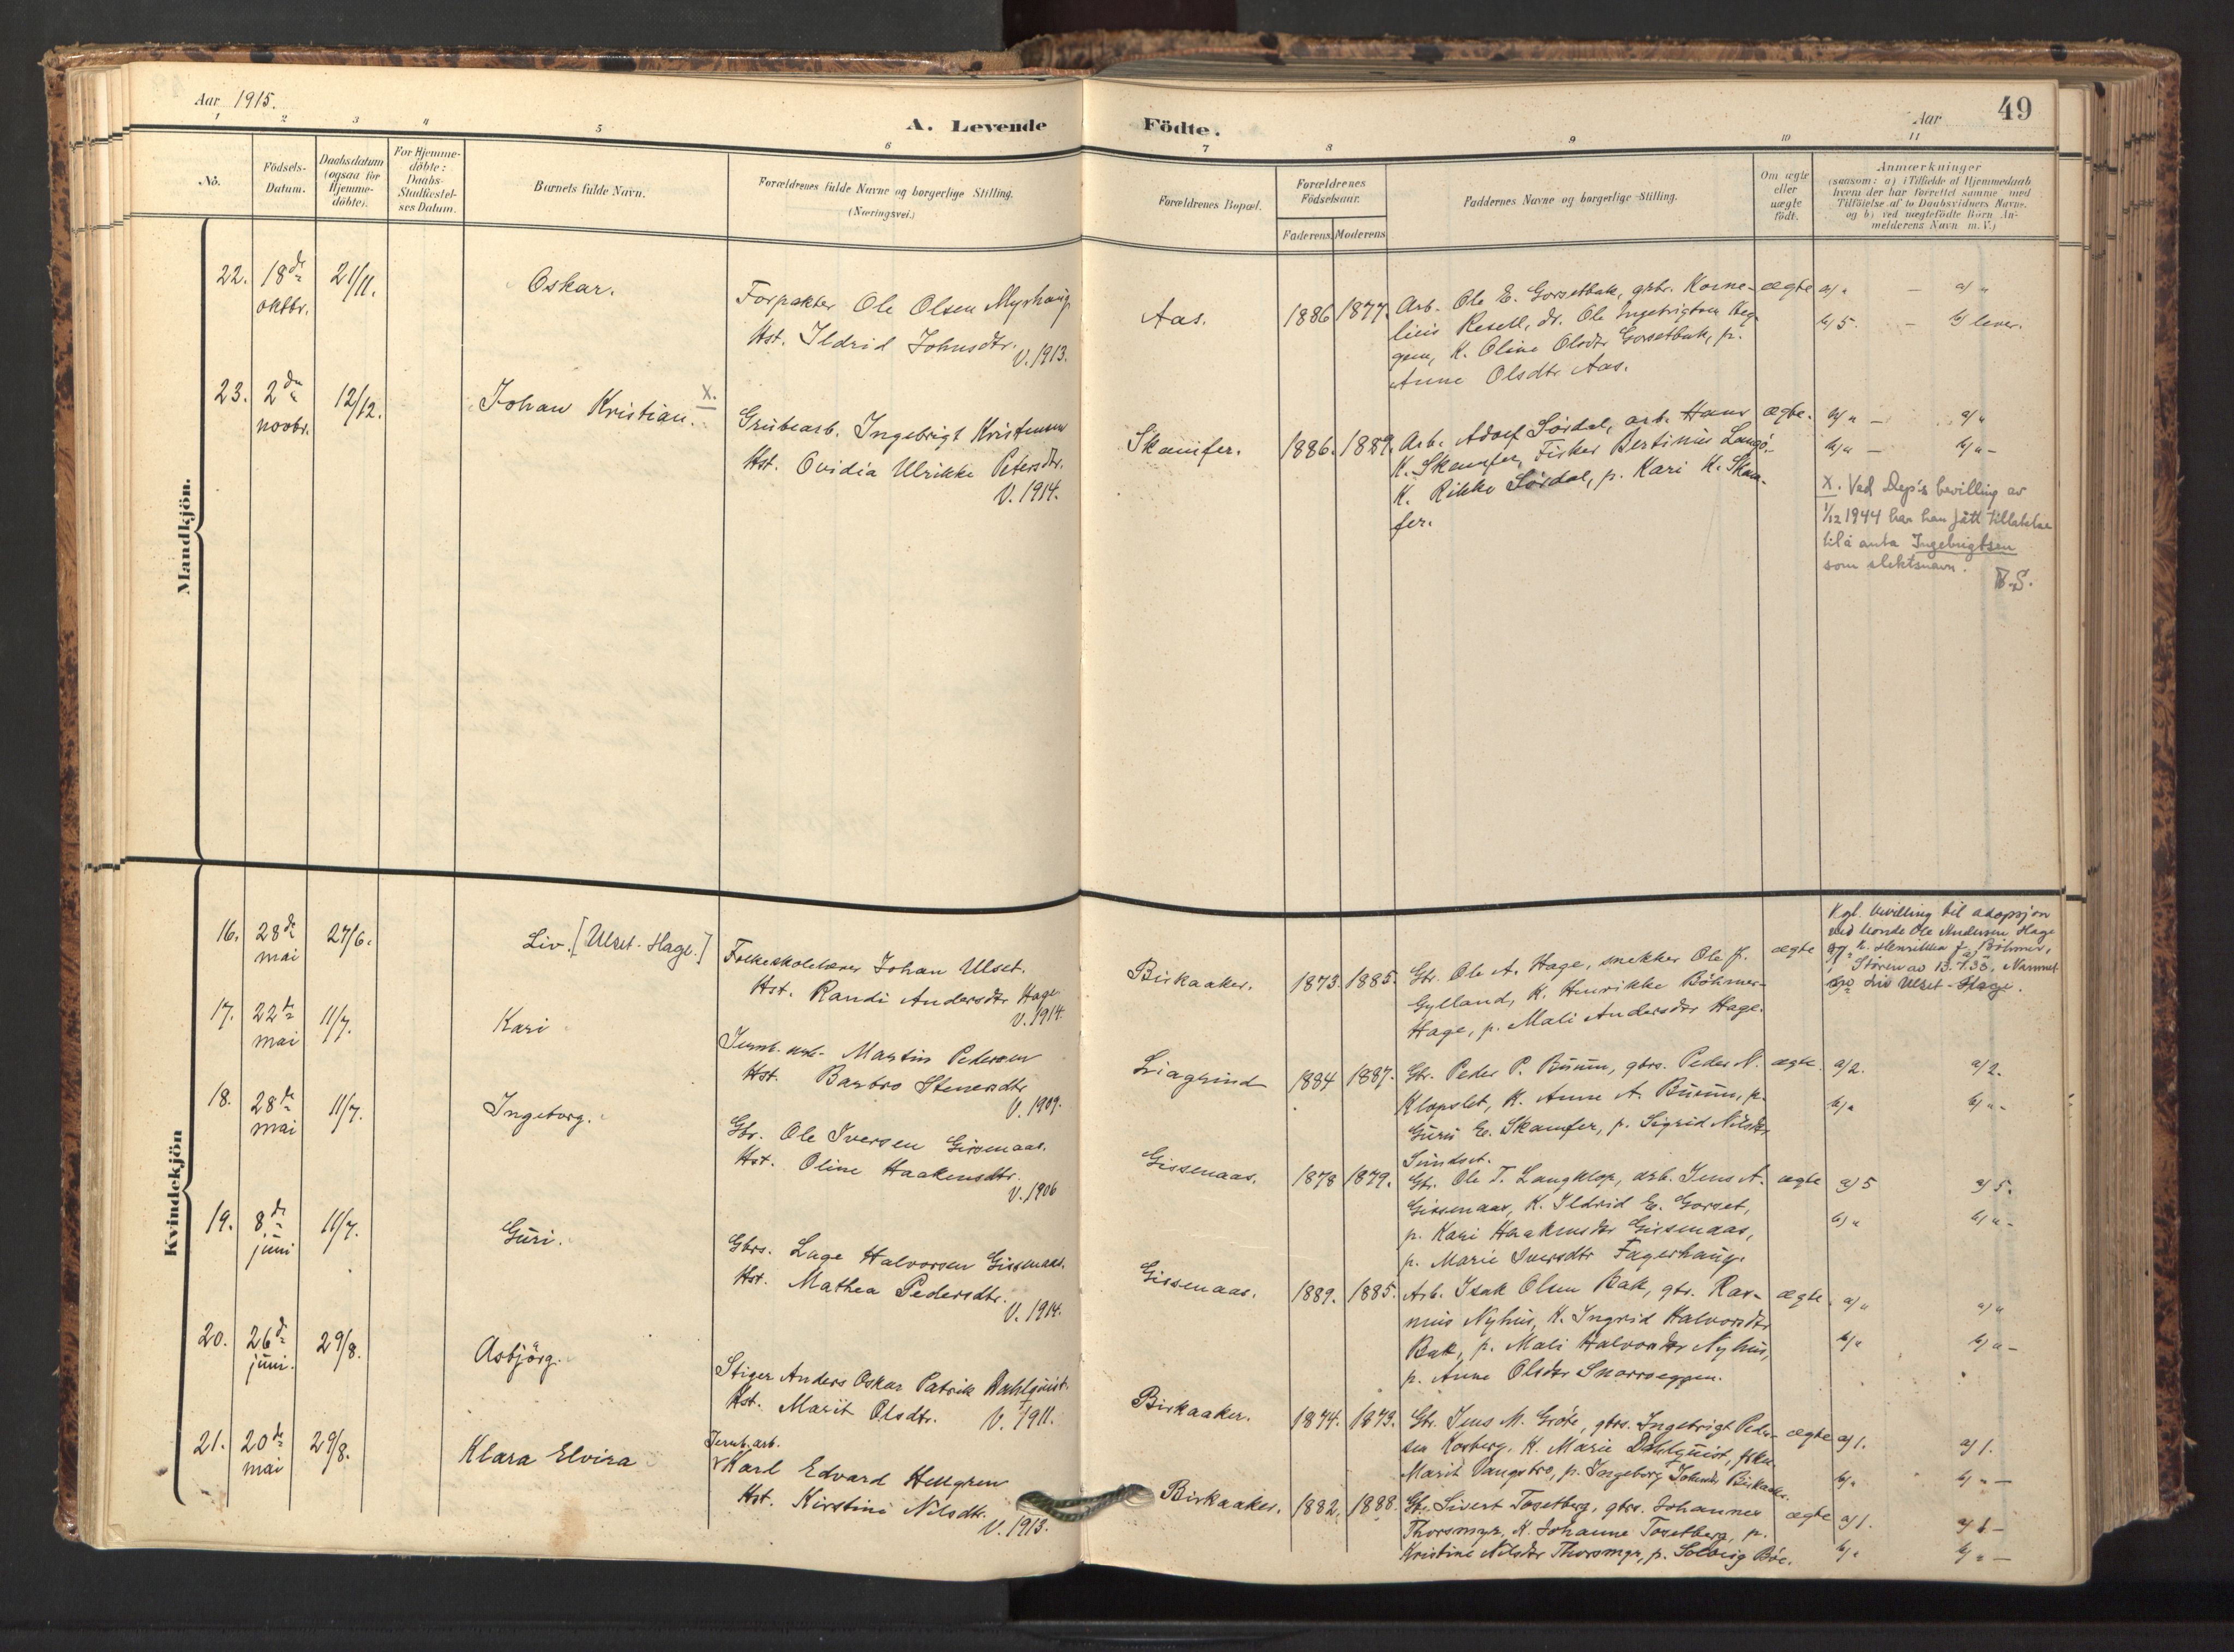 Aar 1915.
A. Levende
Födte.
Aar
49
1 2 3 4 5 6 7 8 9 10 11
No.
Födsels-
Datum.
Daabsdatum
(ogsaa for
Hjemme-
döbte).
For Hjemme-
döbte:
Daabs-
Stadfæstel-
ses Datum.
Barnets fulde Navn.
Forældrenes fulde Navne og borgerlige Stilling.
(Næringsvei.)
Forældrenes Bopæl.
Forældrenes
Födselsaar.
Faderens.
Moderens
Faddernes Navne og borgerlige Stilling.
Om ægte
eller
uægte
födt.
Anmærkninger
(saasom: a) i Tilfælde af Hjemmedaab
hvem der har forrettet samme, med
Tilföielse af to Daabsvidners Navne,
og b) ved uægtefödte Börn An-
melderens Navn m. V.)
Mandkjön.
22. 18de
oktbr.
21/11.
Oskar.
Forpakter Ole Olsen Myrhaug
Hst. Ildrid Johnsdtr.
V. 1913.
Aas.
1886 1877.
Arb. Ole E. Gorsetbak, gbr. Korne-
lius Resell, dr. Ole Ingebrigtsen Heg-
gen, K. Oline Olsdtr Gorsetbak, p.
Anne Olsdtr Aas.
ægte
a) " — a) "
b) 5. — b) lever.
23. 2den
novbr.
12/12.
Johan Kristian. X.
Grubearb. Ingebrigt Kristensen
Hst. Ovidia Ulrikke Petersdtr.
V. 1914.
Skamfer.
1886. 1889.
Arb. Adolf Sørdal, arb. Hans
K. Skamfer, Fisker Bertinius Langö,
K. Rikke Sørdal, p. Kari K. Skam-
fer.
ægte.
a) " — a) "
b) " — b) " —
X. Ved Dep's bevilling av
1/12 1944 har han fått tillatelse
til å anta Ingebrigtsen
som slektsnavn.
Kvindekjön
16. 28de
mai
27/6.
Liv. [Ulset-Hage.]
Folkeskolelærer Johan Ulset.
Hst. Randi Andersdtr Hage
V. 1914.
Birkaaker.
1873. 1885.
Gbr. Ole A. Hage, snekker Ole J.
Gylland, K. Henrikke Böhmer-
Hage, p. Mali Andersdtr Hage.
ægte
Kgl. bevilling til adopsjon
ved bonde Ole Andersen Hage
og h. Henrikka f. Böhmer,
Støren av 13.7.35. Navnet
Liv Ulset-Hage.
17. 22de
mai
11/7.
Kari
Jernb. arb. Martin Pedersen
Hst. Barbro Stenersdtr
V. 1909.
Liagrind
1884 1887.
Gbr. Peder P. Buum, gbrs. Peder N.
Klopslet, K. Anne A. Buum, p.
Guru E. Skamfer, p. Sigrid Nilsdtr
Sundset.
ægte.
a) 2. a) 2.
b) " b) " -
18. 28de
mai
11/7.
Ingeborg.
Gbr. Ole Iversen Gissenaas.
Hst. Oline Haakensdtr.
V. 1906
Gissenaas.
1878 1879.
Gbr. Ole T. Langklop, arb. Jens A.
Gissenaas, K. Ildrid E. Gorset,
p. Kari Haakensdtr Gissenaas,
p. Marie Iversdtr Fagerhaug.
ægte
a) 5 a) 5.
b) " b) " -
19. 8de
juni
11/7.
Guri.
Gbrs. Lage Halvorsen Gissenaas.
Hst. Mathea Pedersdtr.
V. 1914.
Gissenaas.
1889. 1885.
Arb. Isak Olsen Bak, gbr. Ras-
mus Nyhus, K. Ingrid Halvorsdtr
Bak, p. Mali Halvorsdtr Nyhus,
p. Anne Olsdtr Snorroeggen.
ægte.
a) " a) "
b) " b) " -
20. 26de
juni.
29/8.
Asbjörg.
Stiger Anders Oskar Patrik Dahlquist.
Hst. Marit Olsdtr. V. 1911.
Birkaaker.
1874. 1873.
Gbr. Jens M. Gröte, gbrs. Ingebrigt Peder-
sen Kosberg, K. Marie Dahlquist,
Marit Vangsbro, p. Ingeborg Birkaaker.
ægte
a) 1. a) 1.
b) " b) " —
21. 20de
mai
29/8.
Klara Elvira
Jernb. arb.
Karl Edvard Hellgren
Hst. Kirstine Nilsdtr.
V. 1913.
Birkaaker.
1882. 1888.
Gbr. Sivert Tosetberg, gbrs. Johannes
Thorsmyr, K. Johanne Tosetberg, p.
Kristine Nilsdtr Thorsmyr, p. Solveig Böe.
ægte
a) 1. a) 1 —
b) " b) " —